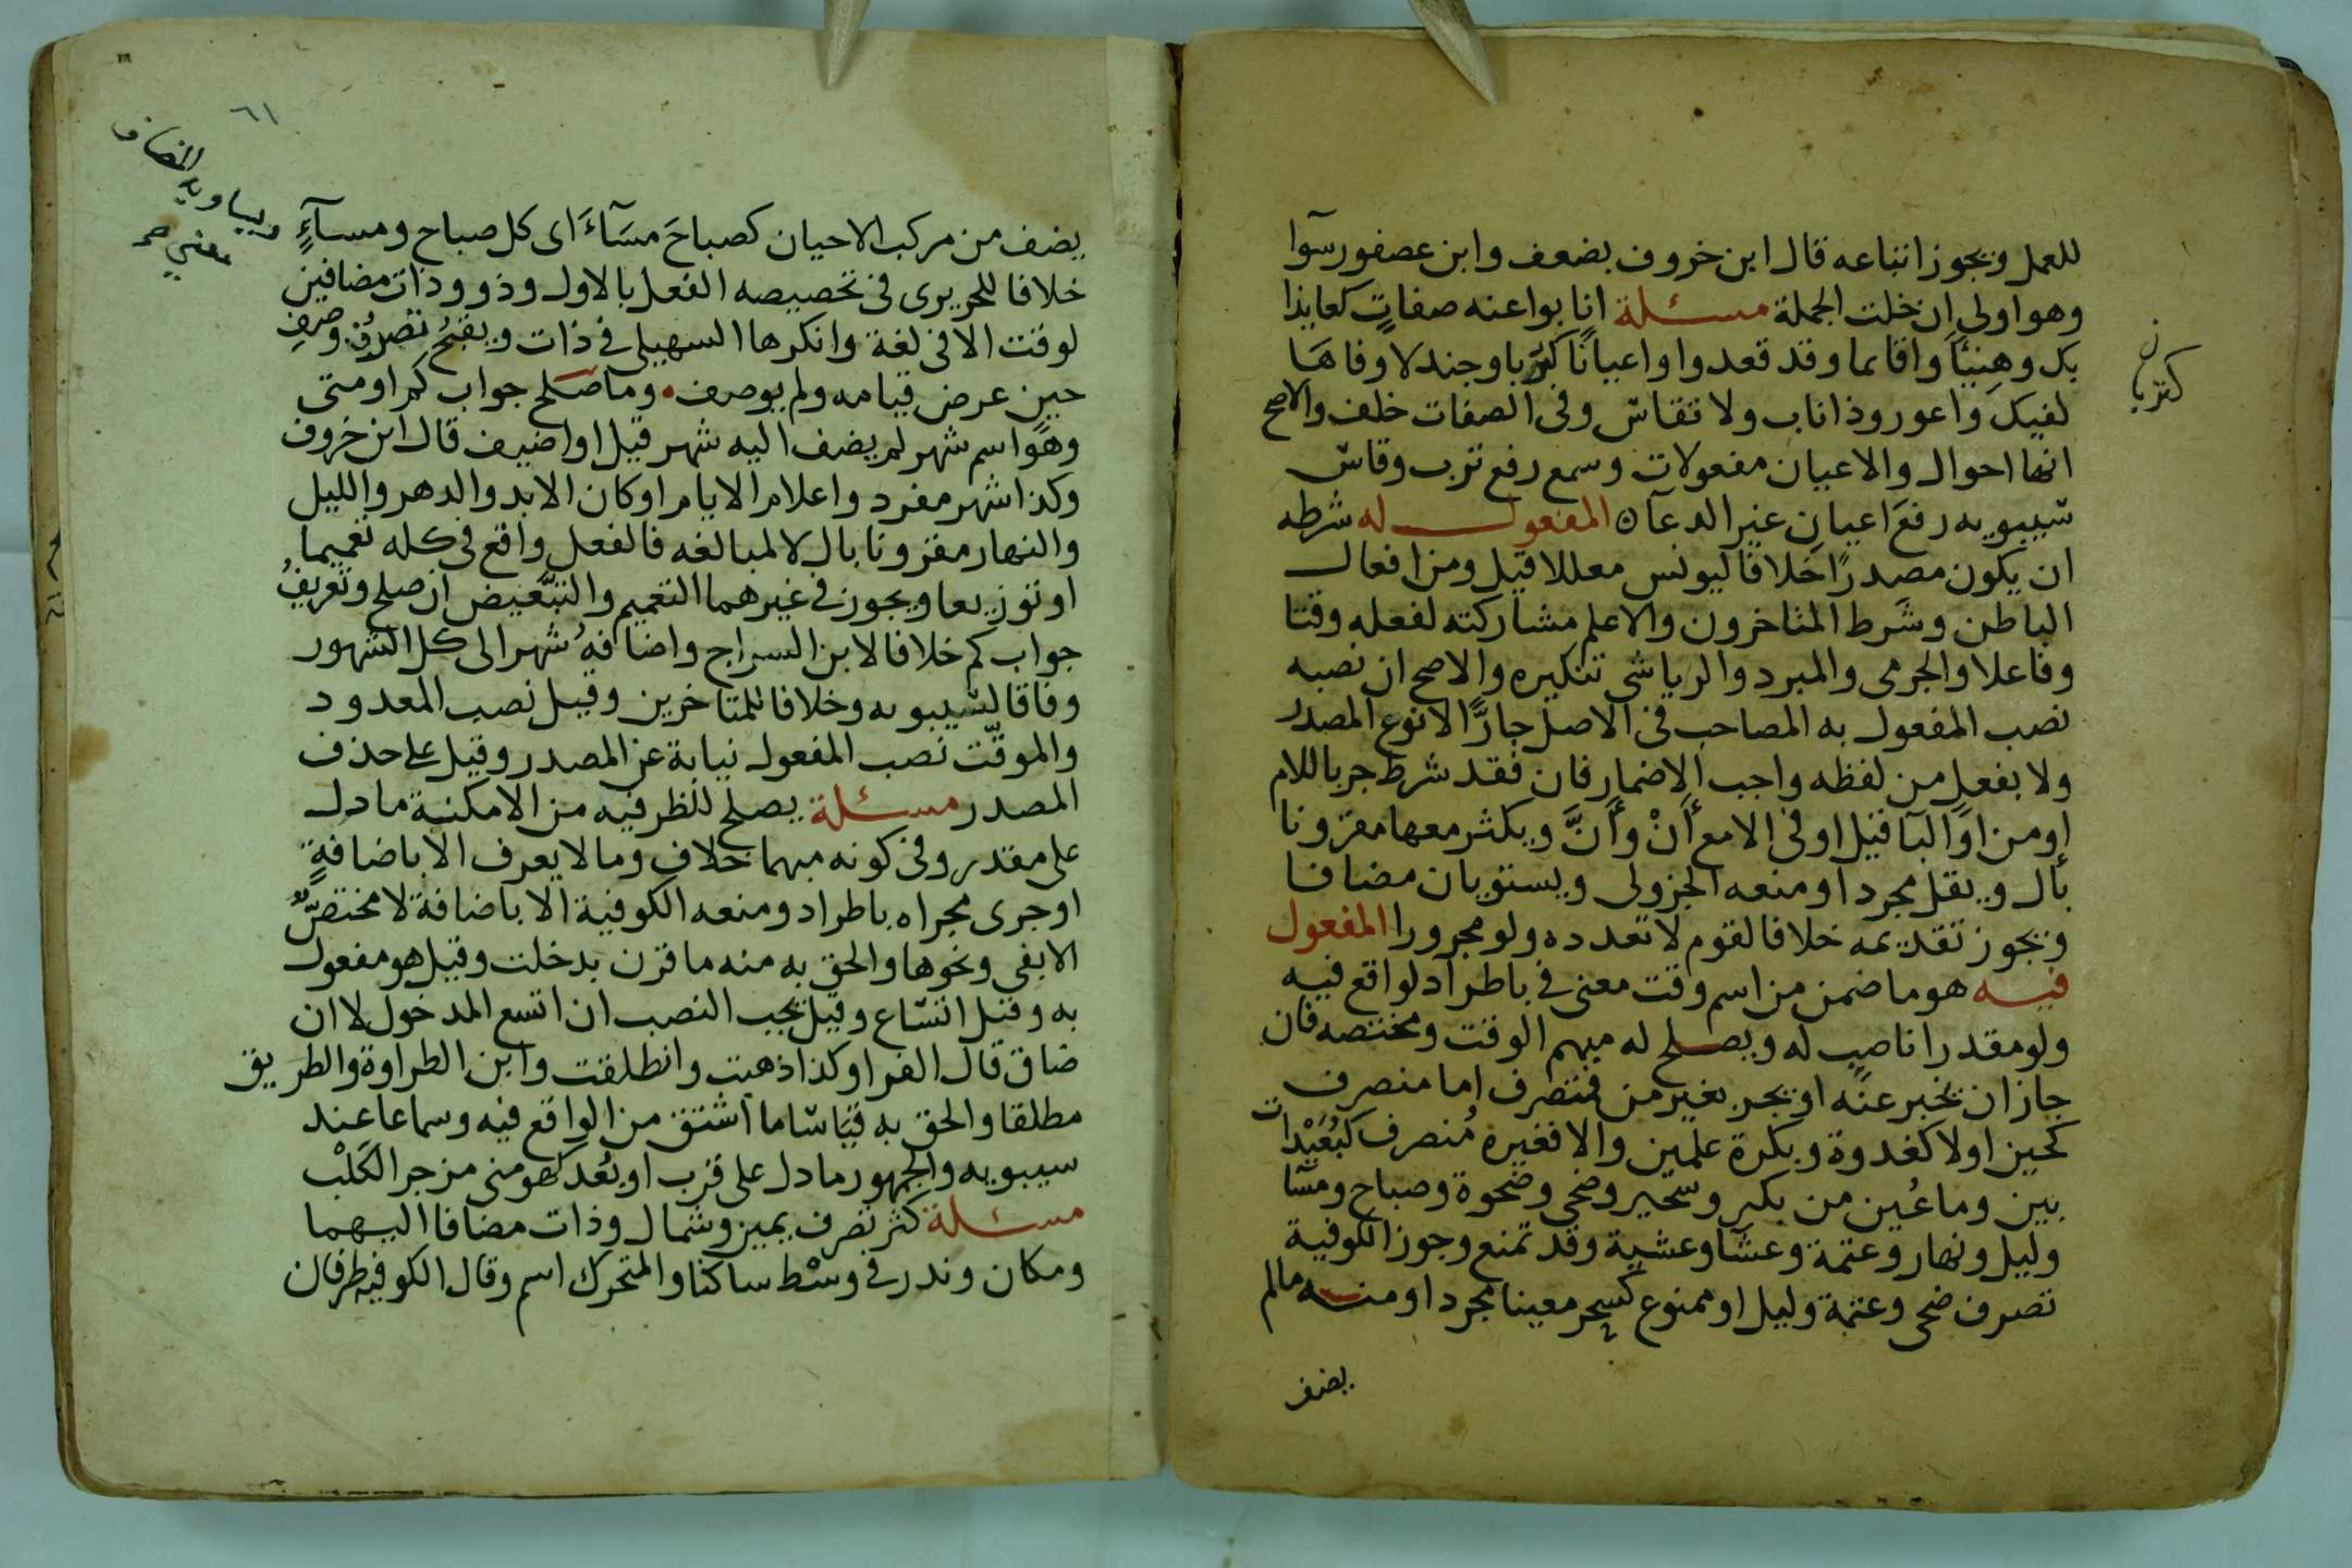 للعمل ويجوز اتباعه قال ابن خروف بضعف وابن عصفور سوا
وهو اولى ان خلت الجملة مسئلة انابوا عنه صفات كعايذا
بك وهنيئا واقائما وقد قعدوا واعيانا كتربا وجندلا وفاها
لفيك واعور وذا ناب ولا تقاس وفى الصفات خلف والاصح
انها احوال والاعيان مفعولات وسمع رفع ترب وقاس
سيبويه رفع اعيان غير الدعآ المفعول له شرطه
ان يكون مصدرا خلافا ليونس معللا قيل ومن افعال
الباطن وشرط المتاخرون والاعلم مشاركته لفعله وقتا
وفاعلا والجرمى والمبرد والرياشى تنكيره والاصح ان نصبه
نصب المفعول به المصاحب فى الاصل جارا لا نوع المصدر
ولا بفعل من لفظه واجب الاضمار فان فقد شرط جر باللام
او من او البا قيل او فى الا مع أنْ وأنَّ ويكثر معها مقرونا
بأل ويقل مجردا ومنعه الجزولى ويستويان مضافا
ويجوز تقديمه خلافا لقوم لا تعدده ولو مجرورا المفعول
فيه هو ما ضمن من اسم وقت معنى فى باطراد لواقع فيه
ولو مقدرا ناصب له ويصلح له مبهم الوقت ومختصه فان
جاز ان يخبر عنه او يجر بغير من فمتصرف اما منصرف
كحين اولا كغدوة وبكرة علمين والا فغيره منصرف كبعيدات
بين وما عين من بكر وسحير وضحى وضحوة وصباح ومسا
وليل ونهار وعتمة وعشا وعشية وقد تمنع وجوز الكوفية
تصرف ضحى وعتمة وليل او ممنوع كسحر معينا مجردا ومنه مالم
يضف
كتربا
٦١
يضف من مركب الاحيان كصباحَ مسآءَ اى كل صباح ومسآءٍ
خلافا للحريرى فى تخصيصه الفعل بالاول وذو وذات مضافين
لوقت الا فى لغة وانكرها السهيلى فى ذات ويقبح تصرف وصف
حين عرض قيامه ولم يوصف وما صلح جواب كم او متى
وهو اسم شهر لم يضف اليه شهر قيل او اضيف قال ابن خروف
وكذا شهر مفرد واعلام الايام او كان الابد والدهر والليل
والنهار مقرونا بال لا لمبالغه فالفعل واقع فى كله تعميما
او توزيعا ويجوز فى غيرهما التعميم والتبعيض ان صلح وتعريف
جواب كم خلافا لابن السراج واضافة شهر الى كل الشهور
وفاقا لسيبويه وخلافا للمتاخرين وقيل نصب المعدود
والموقت نصب المفعول نيابة عن المصدر وقيل على حذف
المصدر مسئلة يصلح للظرفيه من الامكنة ما دل
على مقدر وفى كونه مبهما خلاف وما لا يعرف الا باضافة
او جرى مجراه باطراد ومنعه الكوفية الا باضافة لا مختص
الا بفى ونحوها والحق به منه ما قرن بدخلت وقيل هو مفعول
به وقيل اتساع وقيل يجب النصب ان اتسع المدخول لا ان
ضاق قال الفرا وكذا ذهبت وانطلقت وابن الطراوة والطريق
مطلقا والحق به قياسا ما اشتق من الواقع فيه وسماعا عند
سيبويه والجمهور ما دل على قرب او بعد كهو منى مزجر الكلب
مسئلة كثر تصرف يمين وشمال وذات مضافا اليهما
ومكان وندر فى وسْط ساكنا والمتحرك اسم وقال الكوفيه ظرفان